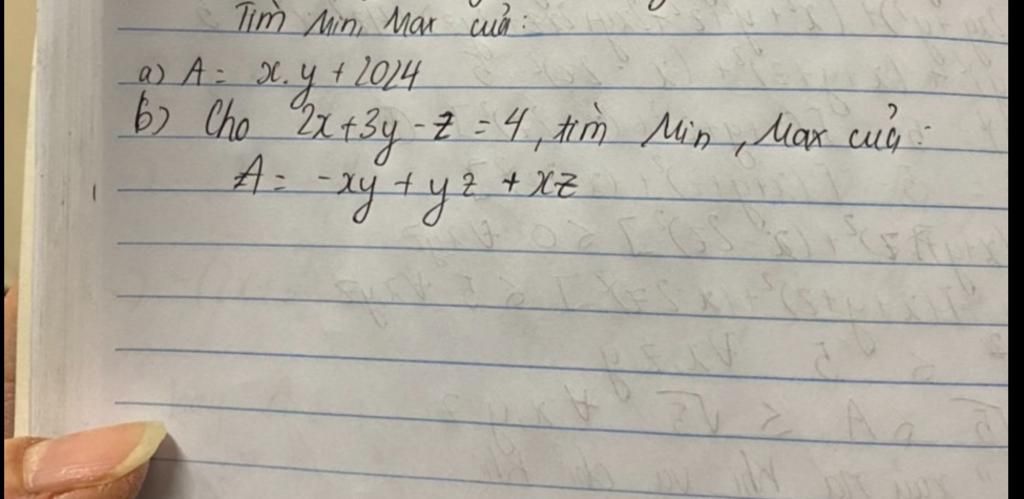 Tìm Min, Max của:
a) A = x.y + 2024
b) Cho 2x+3y-z=4, tìm Min, Max của:
A = -xy + yz + xz